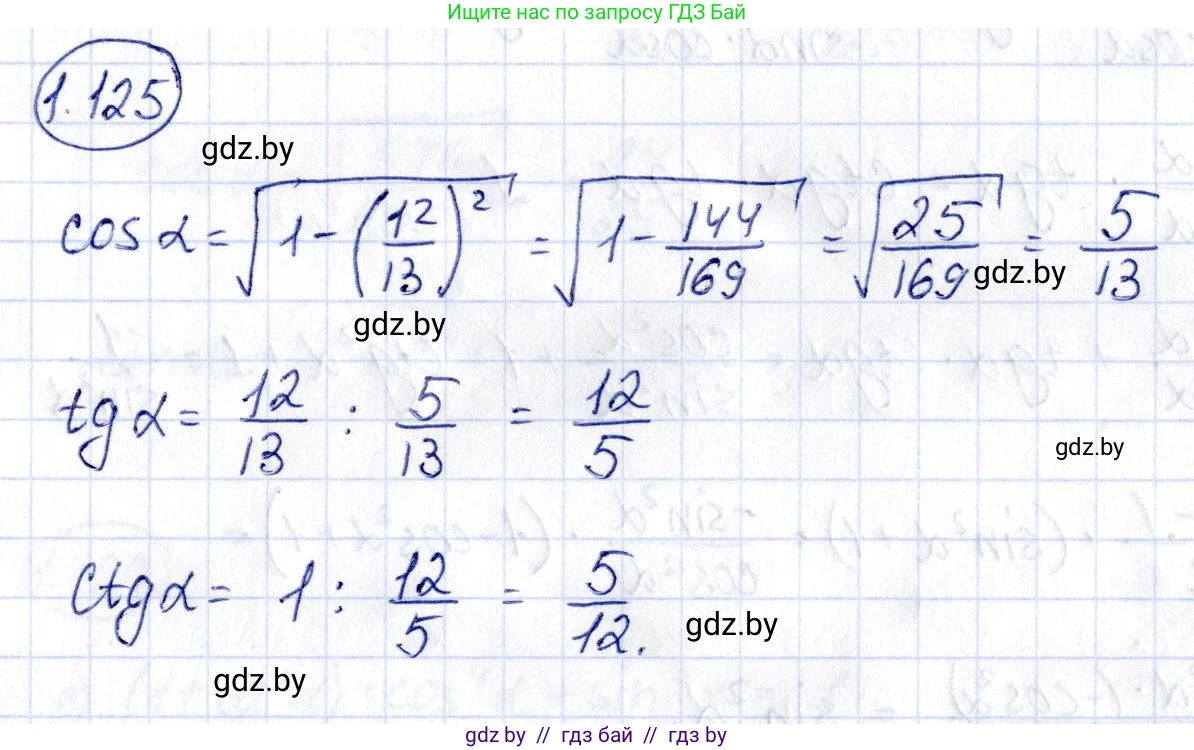 Ищите нас по запросу ГДЗ Бай
1.125
gdz.by
cos α = √(1 - (12/13)²) = √(1 - 144/169) = √(25/169) = 5/13
gdz.by
gdz.by
tg α = 12/13 : 5/13 = 12/5
gdz.by
ctg α = 1 : 12/5 = 5/12.
gdz.by
gdz.by
gdz.by // гдз бай // гдз by